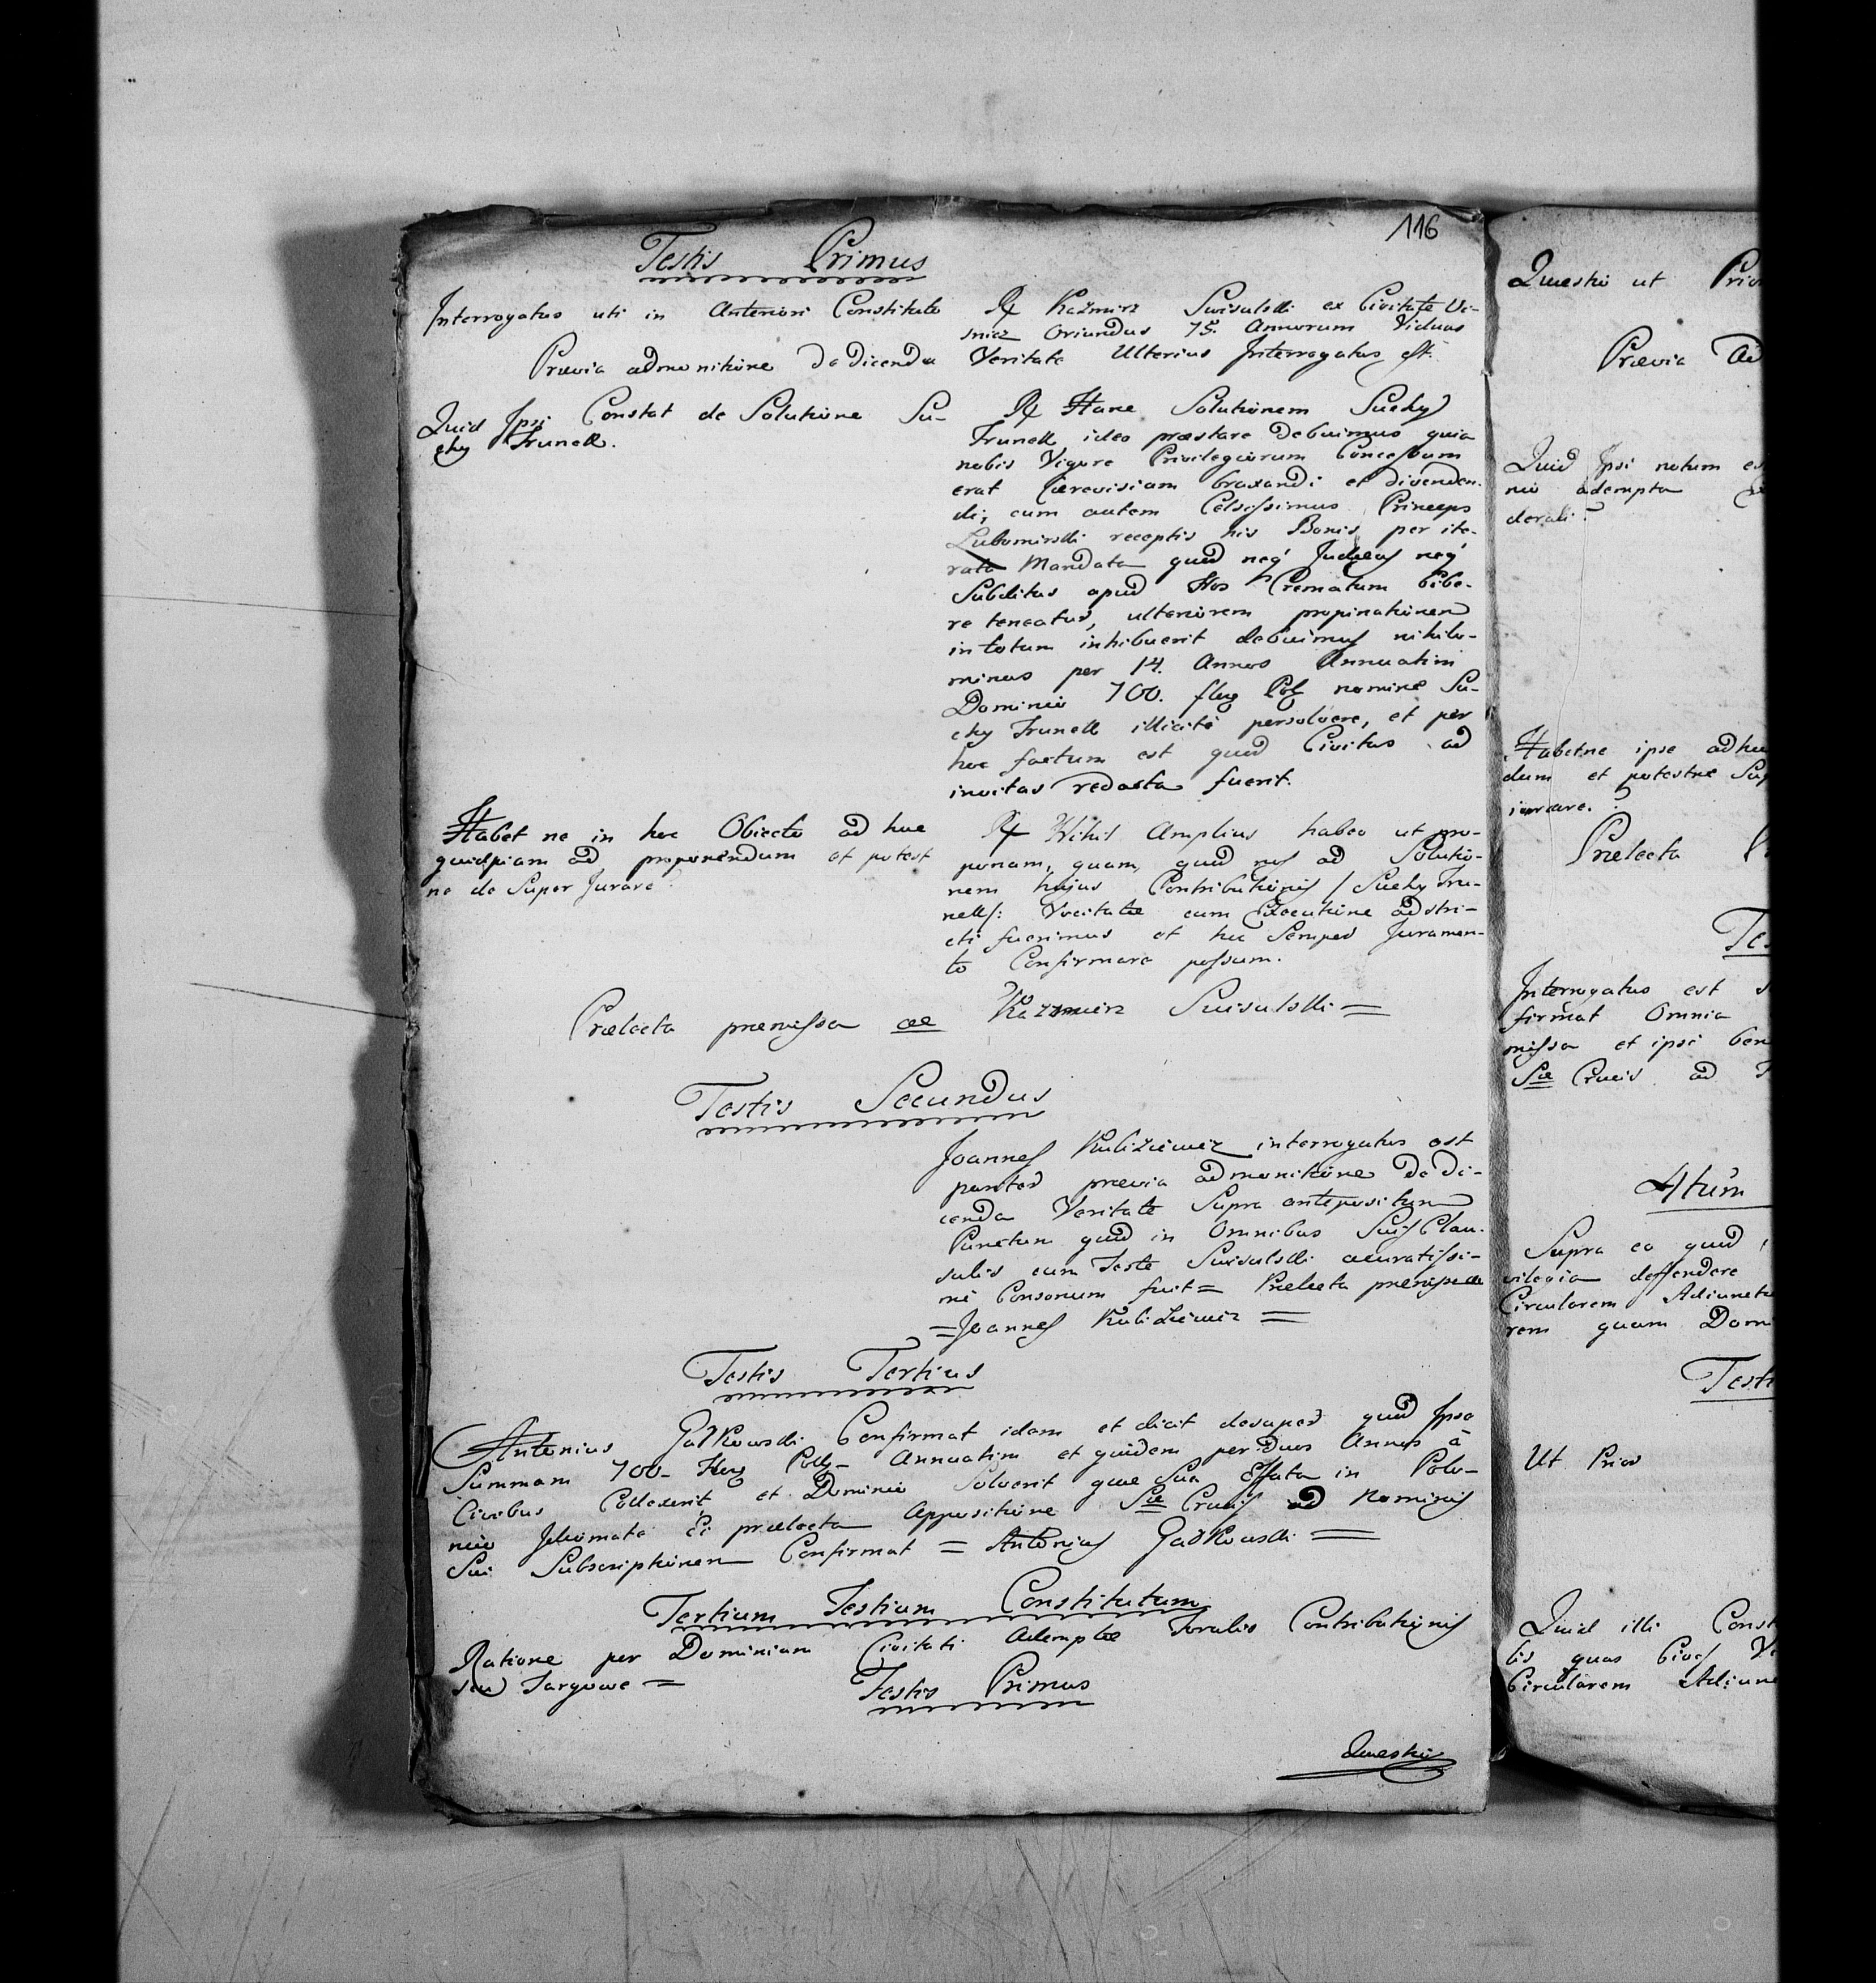 116
Testis Primus
Interrogatus uti in Anteriori Constituto
Rx Kazmirz Suisulski ex Civitate Vi-
snicz Oriundus 75. Annorum Viduus
Prævia admonitione de dicenda Veritate Ulterius Interrogatus est.
Quid Ipsi Constat de Solutione Su-
chy Trunek.
Rx Hanc Solutionem Suchy
Trunek ideo præstare Debuimus quia
nobis Vigore Privilegiorum Concessum
erat Cerevisiam braxandi et divenden-
di, cum autem Celsissimus Princeps
Lubomirski receptis his Bonis per ite-
rata Mandata quod neq Judæus neq
Subditus apud Nos Crematum bibe-
re teneatur, ulteriorem propinationem
in totum inhibuerit debuimus nihilo-
minus per 14. Annos Annuatim
Dominio 700. fl Pol nomine Su-
chy Trunek illicite persolvere, et per
hoc factum est quod Civitas ad
incitas redacta fuerit.
Habet ne in hoc Obiecto ad huc
quidpiam ad proponendum et potest
ne de Super Jurare
Rx Nihil Amplius habeo ut pro-
ponam, quam, quod nos ad Solutio-
nem hujus Contributionis /Suchy Tru-
nek/: Vocitatæ cum Executione adstri-
cti fuerimus et hic Semper Juramen-
to Confirmare possum.
Prælecta præmissa Kazmierz Suisulski =
Testis Secundus
Joannes Kubiziewicz interrogatus est
pariter prævia admonitione de di-
cenda Veritate Supra antepositum
Punctum quod in Omnibus Suis Clau-
sulis cum Teste Suisulski accuratissi-
me Consonum fuit = Prælecta præmissa
= Joannes Kubiziewicz =
Testis Tertius
Antonius Gatkowski Confirmat idem et dicit desuper quod Ipse
Summam 700- Annuatim et quidem per Duos Annos à
Civibus Collexerit, et Dominio Solverit quæ Sua Effata in Polo-
nico Idiomate Ei prælecta Appositione Sæ Crucis ad Nominis
Sui Subscriptionem Confirmat = Antonius Gatkowski =
Tertium Testium Constitutum
Ratione per Dominium Civitati Ademptæ Foralis Contributionis
seu Targowe =
Testis Primus
Quæstio
Quæstio ut
Prævia
Quid Ipsi notum
nio adempta
Habetne ipse adhuc
dum et potestne
iurare.
Prælecta
Interrogatus est
firmat Omnia
missa et ipsi
Sæ Crucis ad
4tum
Supra eo quod
vilegia deffendere
Circularem
rem quam
Ut Prior
Quid illi
tis quas Cives
Circularem